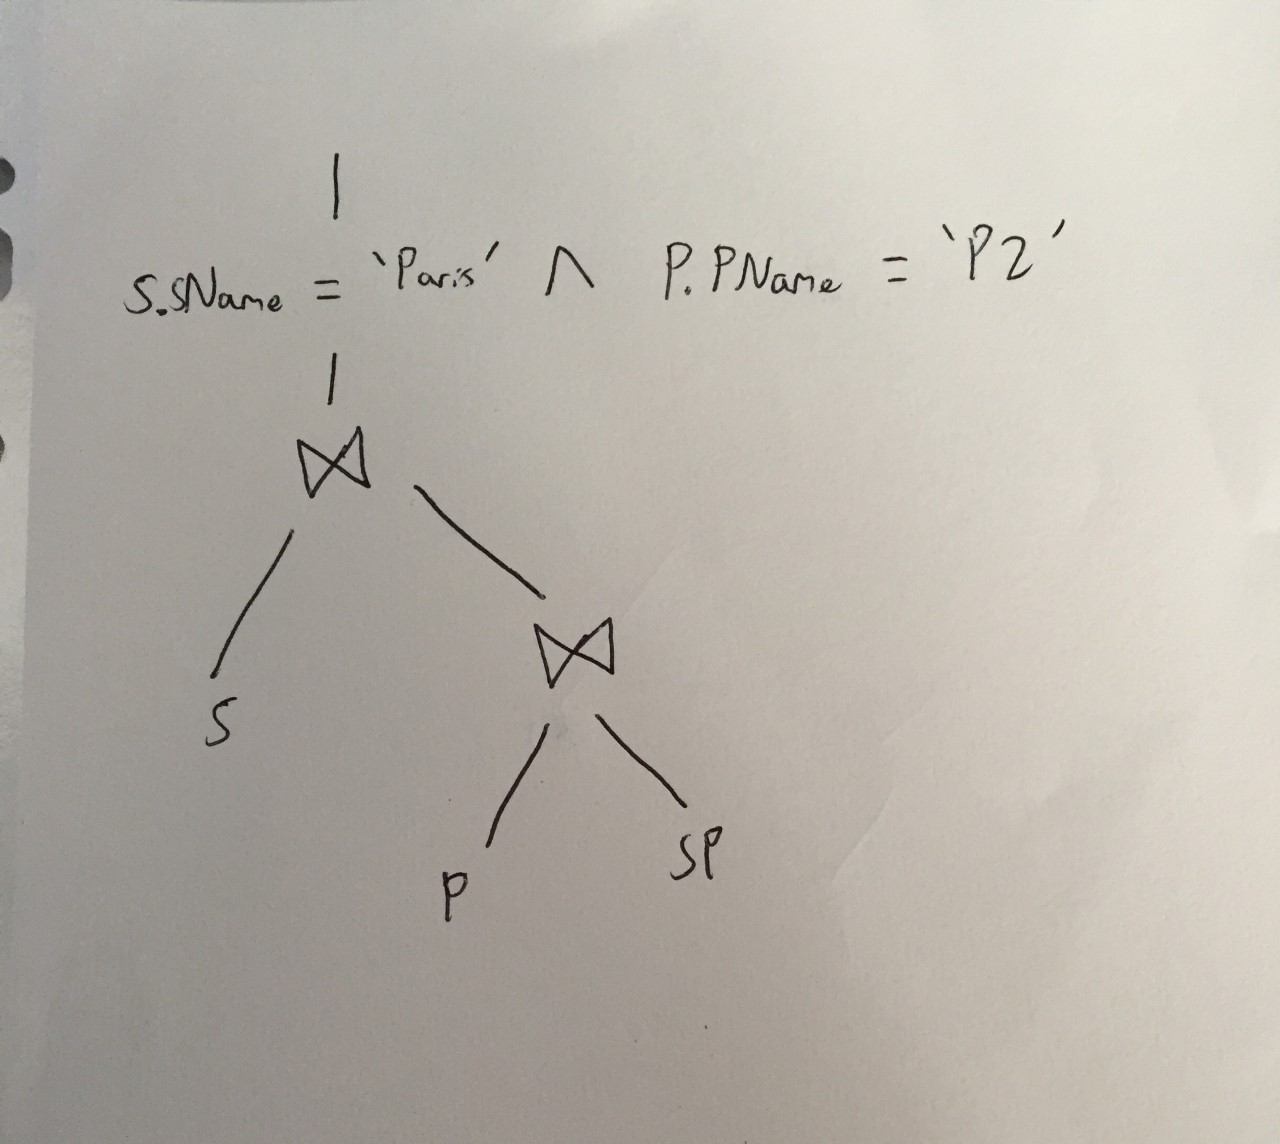 S.SName = 'Paris' ∧ P.PName = 'P2'
⋈
S
⋈
P
SP